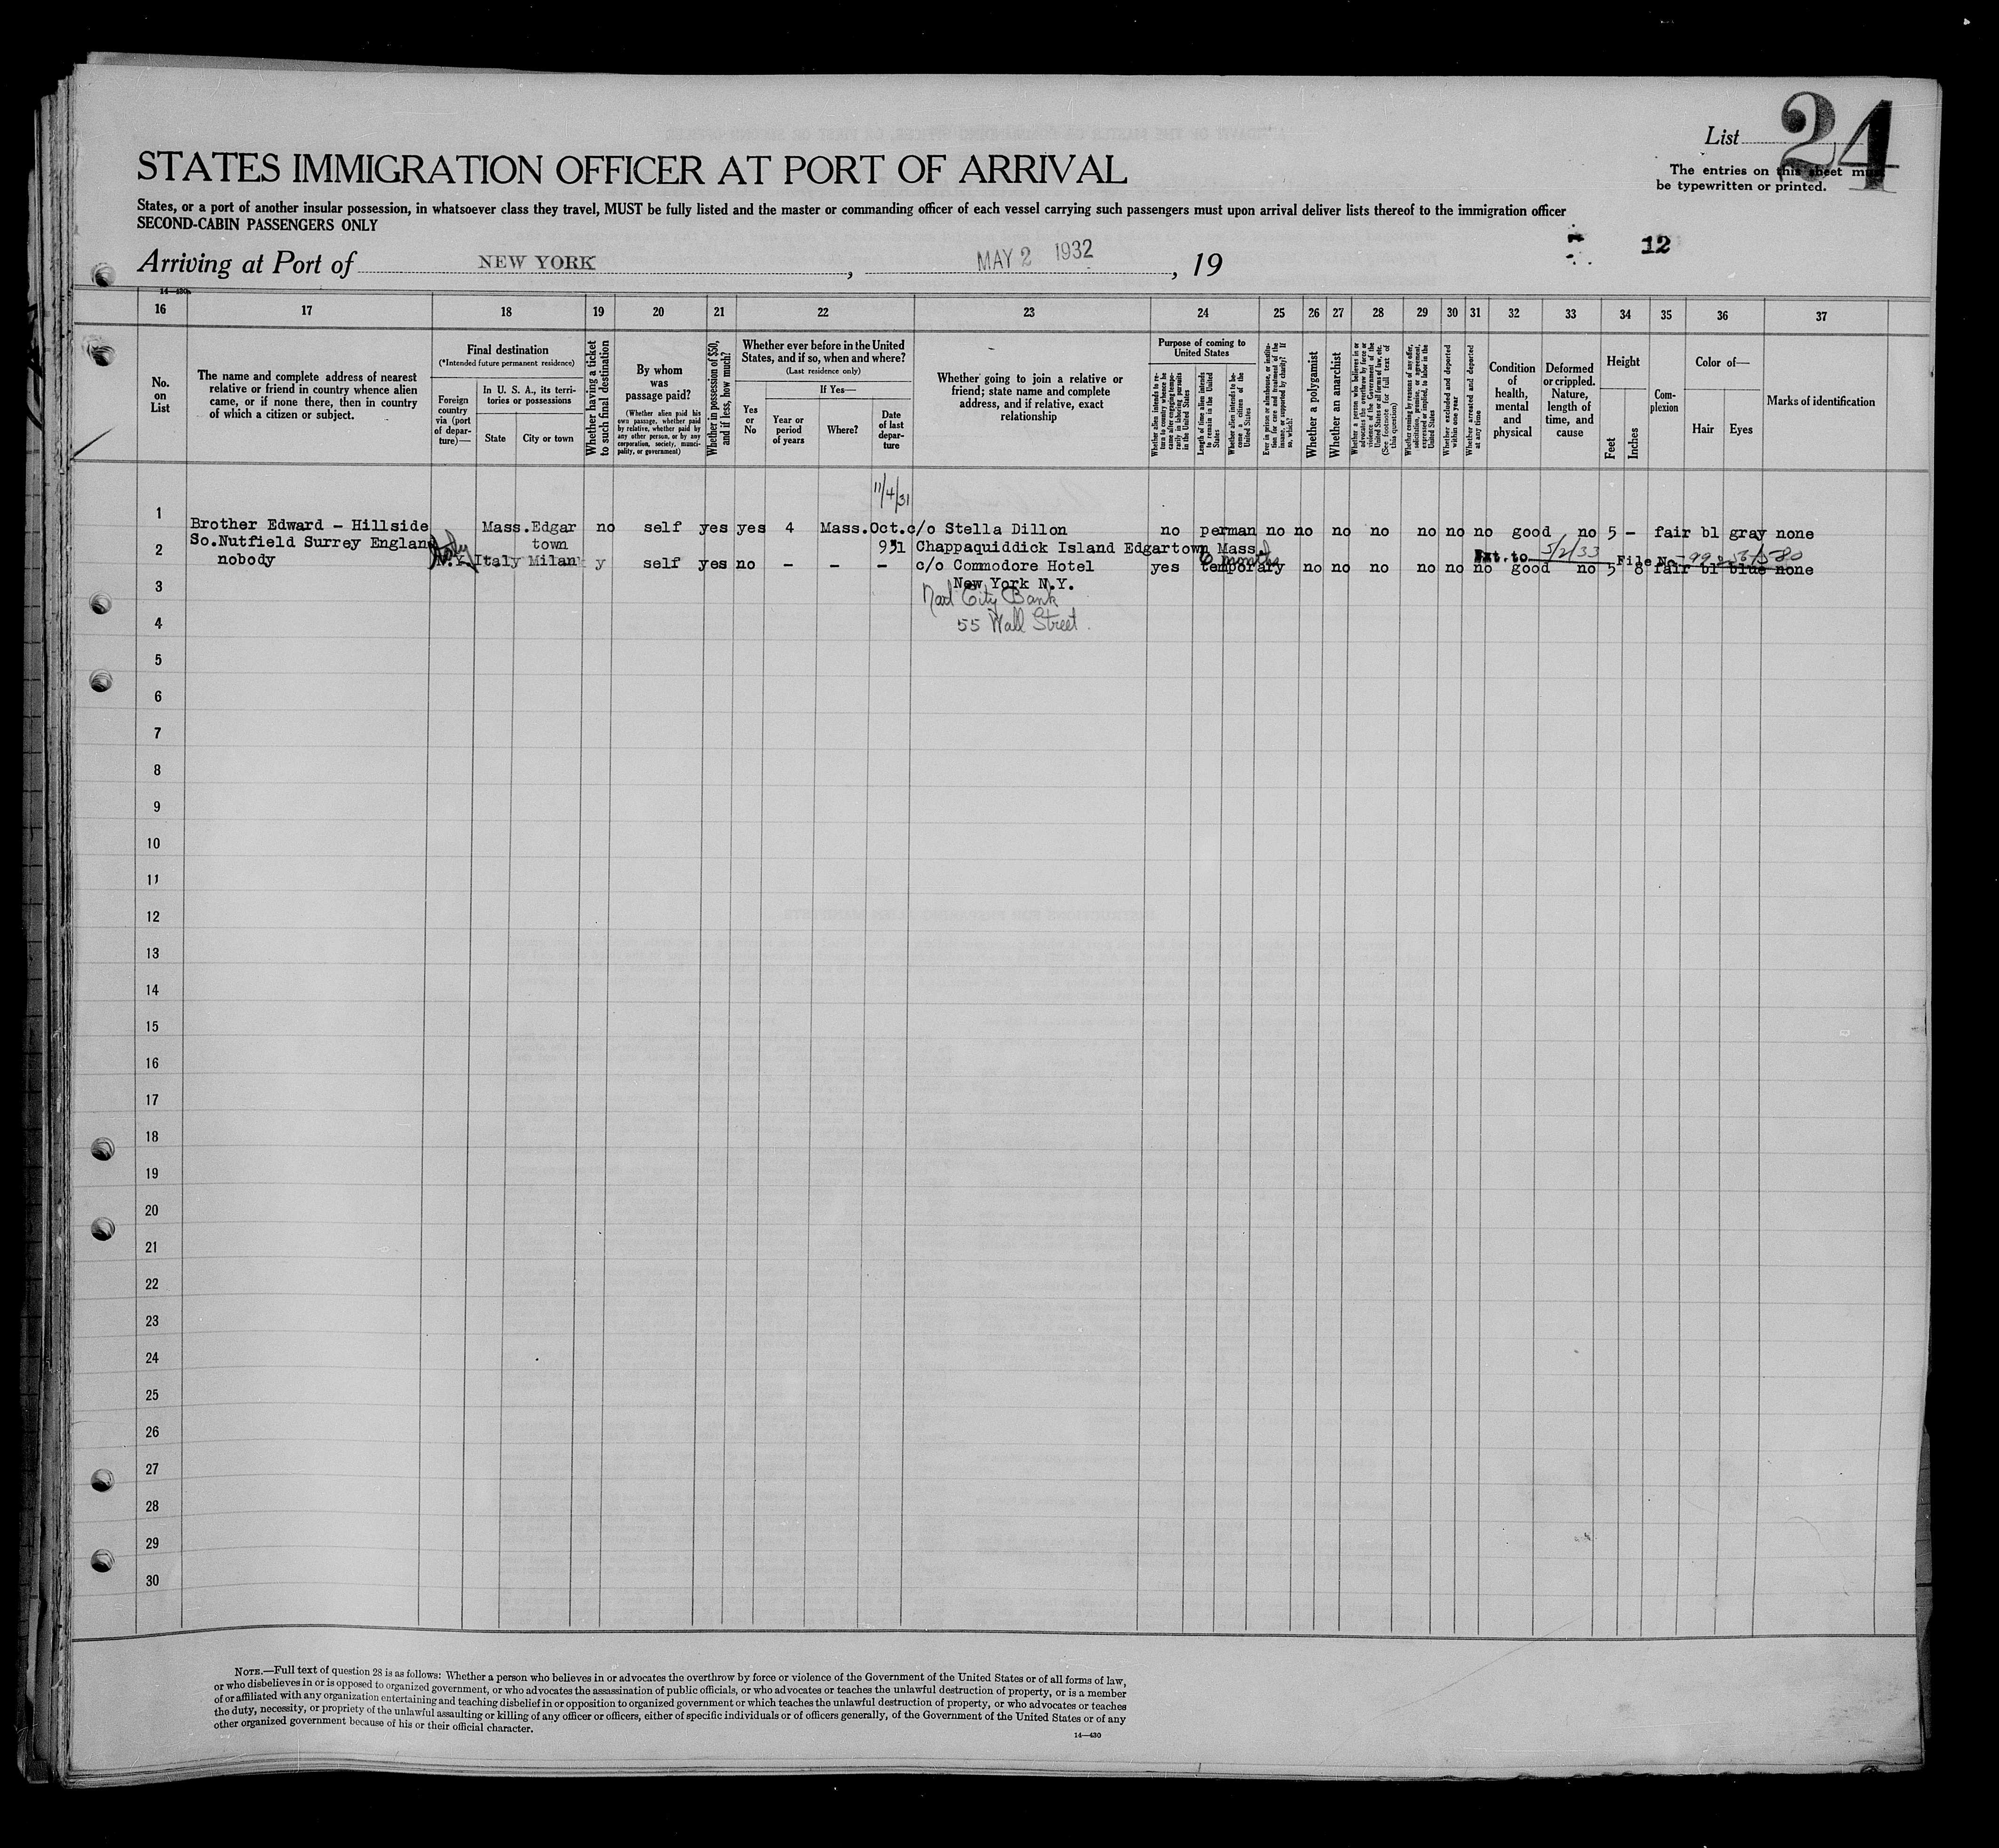 List 24
The entries on this sheet must
be typewritten or printed.
STATES IMMIGRATION OFFICER AT PORT OF ARRIVAL
States, or a port of another insular possession, in whatsoever class they travel, MUST be fully listed and the master or commanding officer of each vessel carrying such passengers must upon arrival deliver lists thereof to the immigration officer
SECOND-CABIN PASSENGERS ONLY
12
Arriving at Port of NEW YORK, MAY 2 1932, 19
14—430
16 17 18 19 20 21 22 23 24 25 26 27 28 29 30 31 32 33 34 35 36 37
No.
on
List
The name and complete address of nearest
relative or friend in country whence alien
came, or if none there, then in country
of which a citizen or subject.
Final destination
(*Intended future permanent residence)
Foreign
country
via (port
of depar-
ture)—
In U. S. A., its terri-
tories or possessions
State
City or town
Whether having a ticket
to such final destination
By whom
was
passage paid?
(Whether alien paid his
own passage, whether paid
by relative, whether paid by
any other person, or by any
corporation, society, munici-
pality, or government)
Whether in possession of $50,
and if less, how much?
Whether ever before in the United
States, and if so, when and where?
(Last residence only)
Yes
or
No
If Yes—
Year or
period
of years
Where?
Date
of last
depar-
ture
Whether going to join a relative or
friend; state name and complete
address, and if relative, exact
relationship
Purpose of coming to
United States
Whether alien intends to re-
turn to country whence he
came after engaging tempo-
rarily in laboring pursuits
in the United States
Length of time alien intends
to remain in the United
States
Whether alien intends to be-
come a citizen of the
United States
Ever in prison or almshouse, or institu-
tion for care and treatment of the
insane, or supported by charity? If
so, which?
Whether a polygamist
Whether an anarchist
Whether a person who believes in or
advocates the overthrow by force or
violence of the Government of the
United States or all forms of law, etc.
(See footnote for full text of
this question)
Whether coming by reason of any offer,
solicitation, promise, or agreement,
expressed or implied, to labor in the
United States
Whether excluded and deported
within one year
Whether arrested and deported
at any time
Condition
of
health,
mental
and
physical
Deformed
or crippled.
Nature,
length of
time, and
cause
Height
Feet
Inches
Com-
plexion
Color of—
Hair
Eyes
Marks of identification
11/4/31
1 Brother Edward – Hillside Mass. Edgar no self yes yes 4 Mass. Oct. c/o Stella Dillon no perman no no no no no no no good no 5 – fair bl gray none
So.Nutfield Surrey England town 931 Chappaquiddick Island Edgartown Mass
6 months Ext. to 5/2/33 File No.
2 nobody Italy N.Y. Italy Milan y self yes no – – – c/o Commodore Hotel yes temporary no no no no no no good no 5 8 fair bl blue none
New York N.Y.
3 Natl City Bank
4 55 Wall Street.
5
6
7
8
9
10
11
12
13
14
15
16
17
18
19
20
21
22
23
24
25
26
27
28
29
30
NOTE.—Full text of question 28 is as follows: Whether a person who believes in or advocates the overthrow by force or violence of the Government of the United States or of all forms of law,
or who disbelieves in or is opposed to organized government, or who advocates the assassination of public officials, or who advocates or teaches the unlawful destruction of property, or is a member
of or affiliated with any organization entertaining and teaching disbelief in or opposition to organized government or which teaches the unlawful destruction of property, or who advocates or teaches
the duty, necessity, or propriety of the unlawful assaulting or killing of any officer or officers, either of specific individuals or of officers generally, of the Government of the United States or of any
other organized government because of his or their official character.
14—430